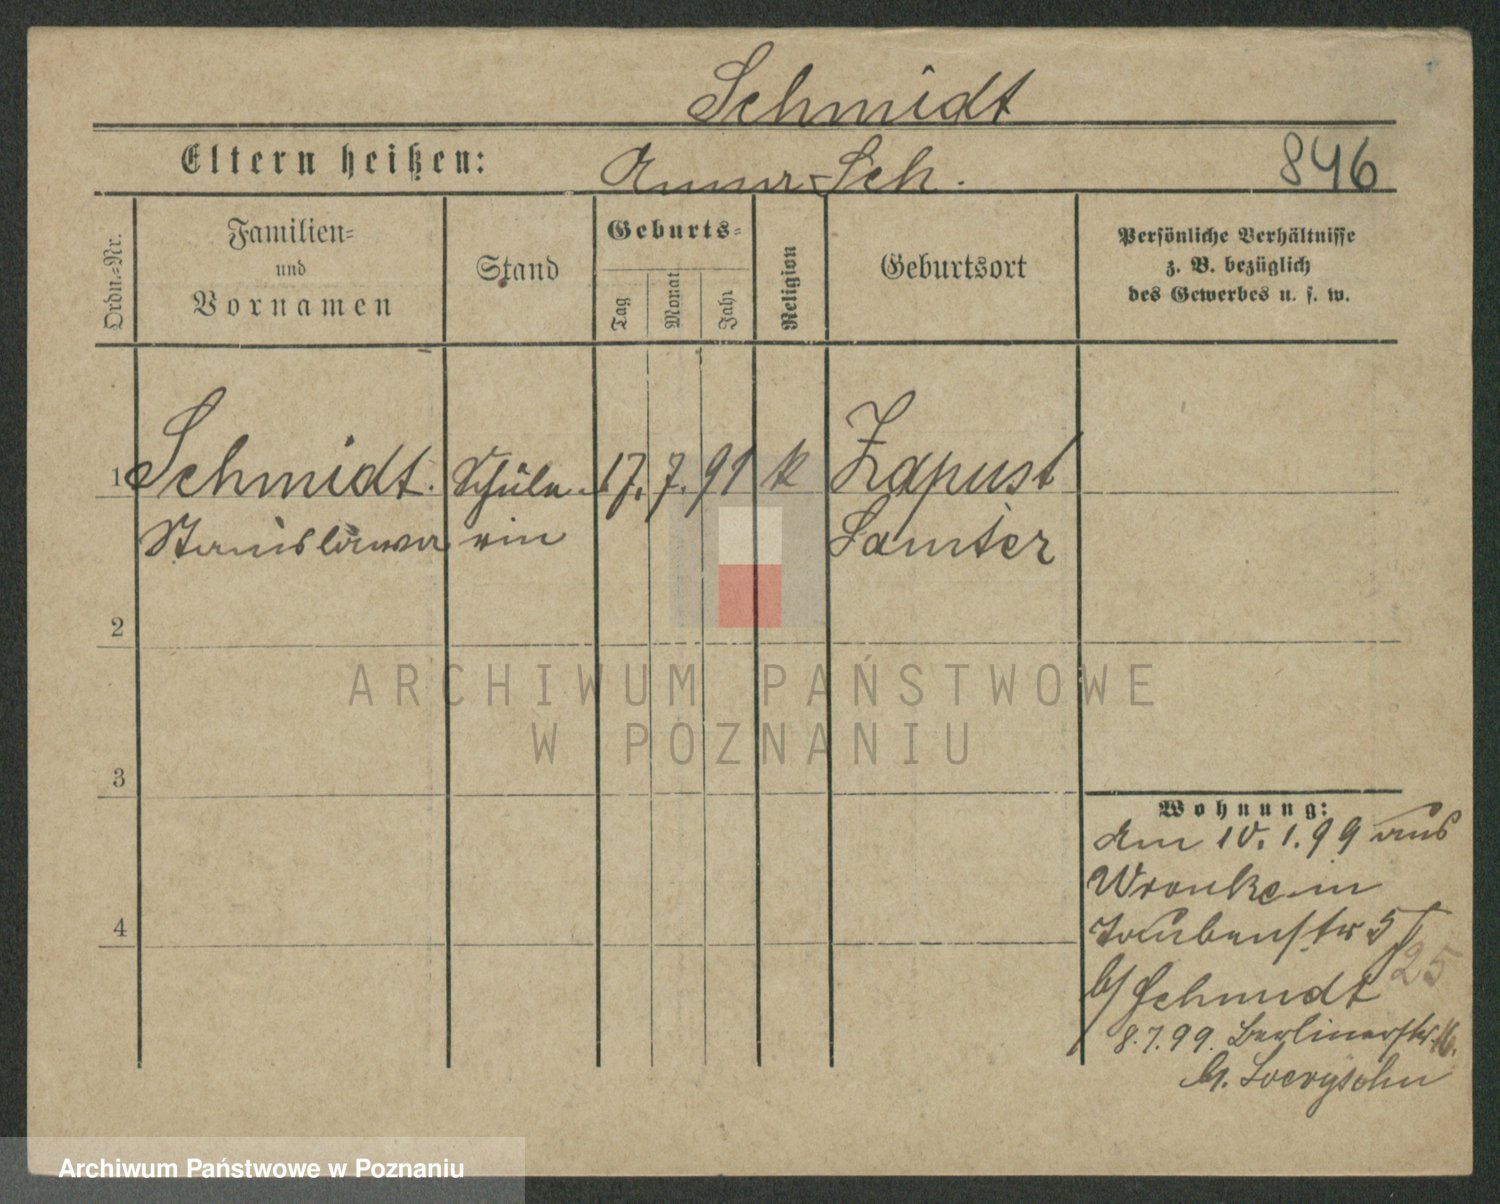 Schmidt
Eltern heißen: Anna Sch. 846
Ordn.=Nr.
Familien=
und
Vornamen
Stand
Geburts=
Tag
Monat
Jahr
Religion
Geburtsort
Persönliche Verhältnisse
z. B. bezüglich
des Gewerbes u. s. w.
1 Schmidt. Schüle- 17. 7. 91 k Zapust
Stanislawa rin Samter
2
ARCHIWUM PAŃSTWOWE
W POZNANIU
3
Wohnung:
Am 10.1.99 aus
Wronke in
Taubenstr 5
25
b/ Schmidt
8.7.99. Berlinerstr. 16.
b/. Loevysohn
4
Archiwum Państwowe w Poznaniu